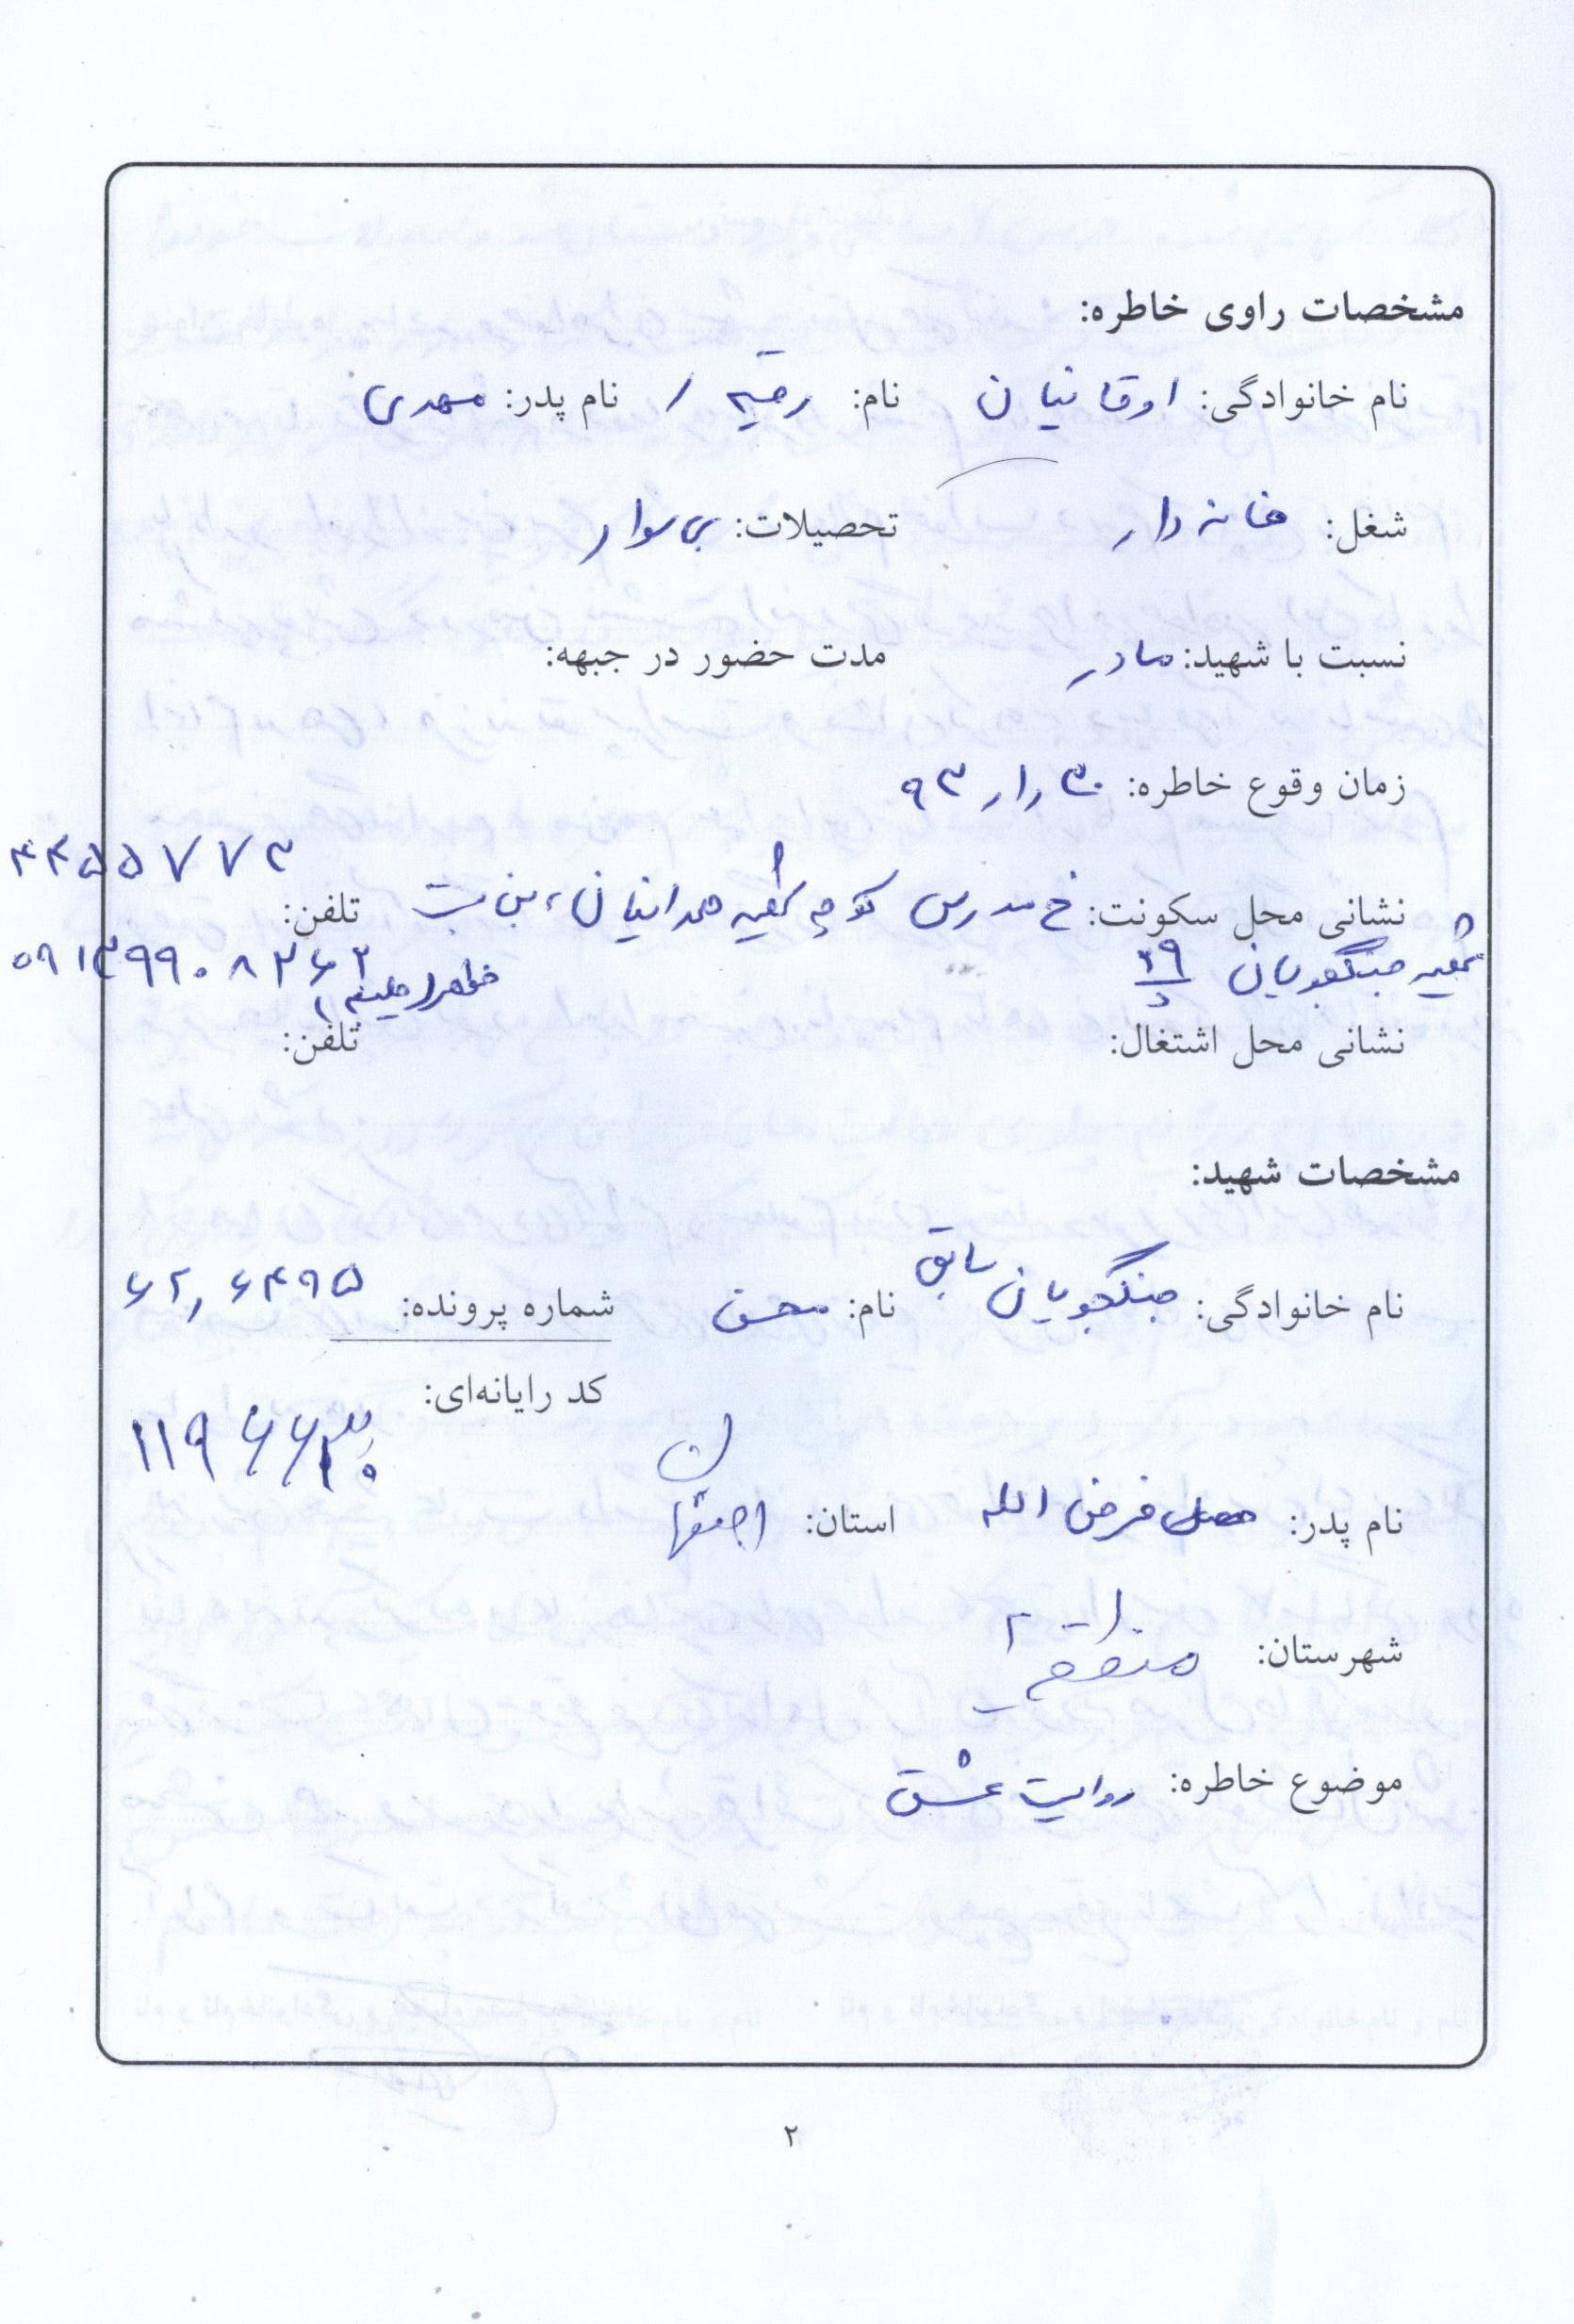 مشخصات راوی خاطره:
نام خانوادگی: اوقانیان نام: رقیه / نام پدر: مهدی
شغل: خانه دار تحصیلات: بی سواد
نسبت با شهید: مادر مدت حضور در جبهه:
زمان وقوع خاطره: ۹۳
نشانی محل سکونت: خ مدرس کوچه شهید همدانیان، بن بست تلفن: ۳۴۵۵۷۷۳
شهید جنگجویان ۲۹
نشانی محل اشتغال: تلفن:
مشخصات شهید:
نام خانوادگی: جنگجویان سابق نام: محسن شماره پرونده: ۶۲,۶۴۹۵
کد رایانه‌ای:
نام پدر: فرض الله استان: اصفهان
شهرستان: منطقه ۲
موضوع خاطره: روایت عشق
۲